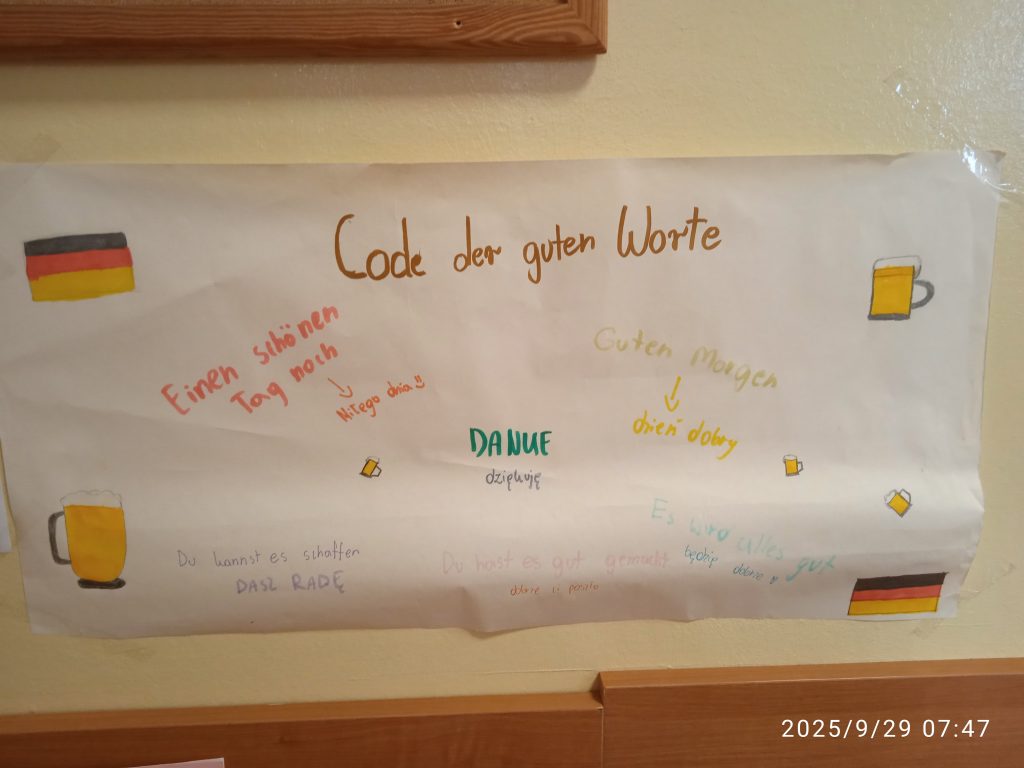 Code der guten Worte
Einen schönen
Tag noch
Miłego dnia
Guten Morgen
dzień dobry
DANKE
dziękuję
Es wird alles gut
będzie dobrze
Du kannst es schaffen
DASZ RADĘ
Du hast es gut gemacht
dobrze ci poszło
2025/9/29 07:47